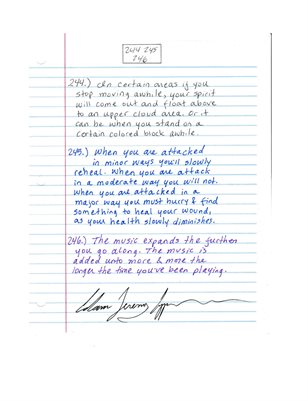 244 245
246
244.) In certain areas if you
stop moving awhile, your spirit
will come out and float above
to an upper cloud area. Or it
can be when you stand on a
certain colored block awhile.
245.) When you are attacked
in minor ways you'll slowly
reheal. When you are attack
in a moderate way you will not.
When you are attacked in a
major way you must hurry & find
something to heal your wound,
as your health slowly diminishes.
246.) The music expands the further
you go along. The music is
added unto more & more the
longer the time you've been playing.
Adam Jeremy